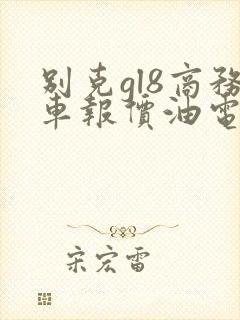 别克gl8商务
車報價油電
宋宏雷